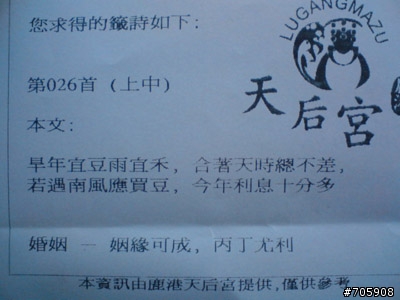 您求得的籤詩如下:
LUGANGMAZU
第026首 (上中)
天后宮
本文:
旱年宜豆雨宜禾, 合著天時總不差,
若遇南風應買豆, 今年利息十分多
婚姻 — 姻緣可成, 丙丁尤利
本資訊由鹿港天后宮提供,僅供參考
#705908